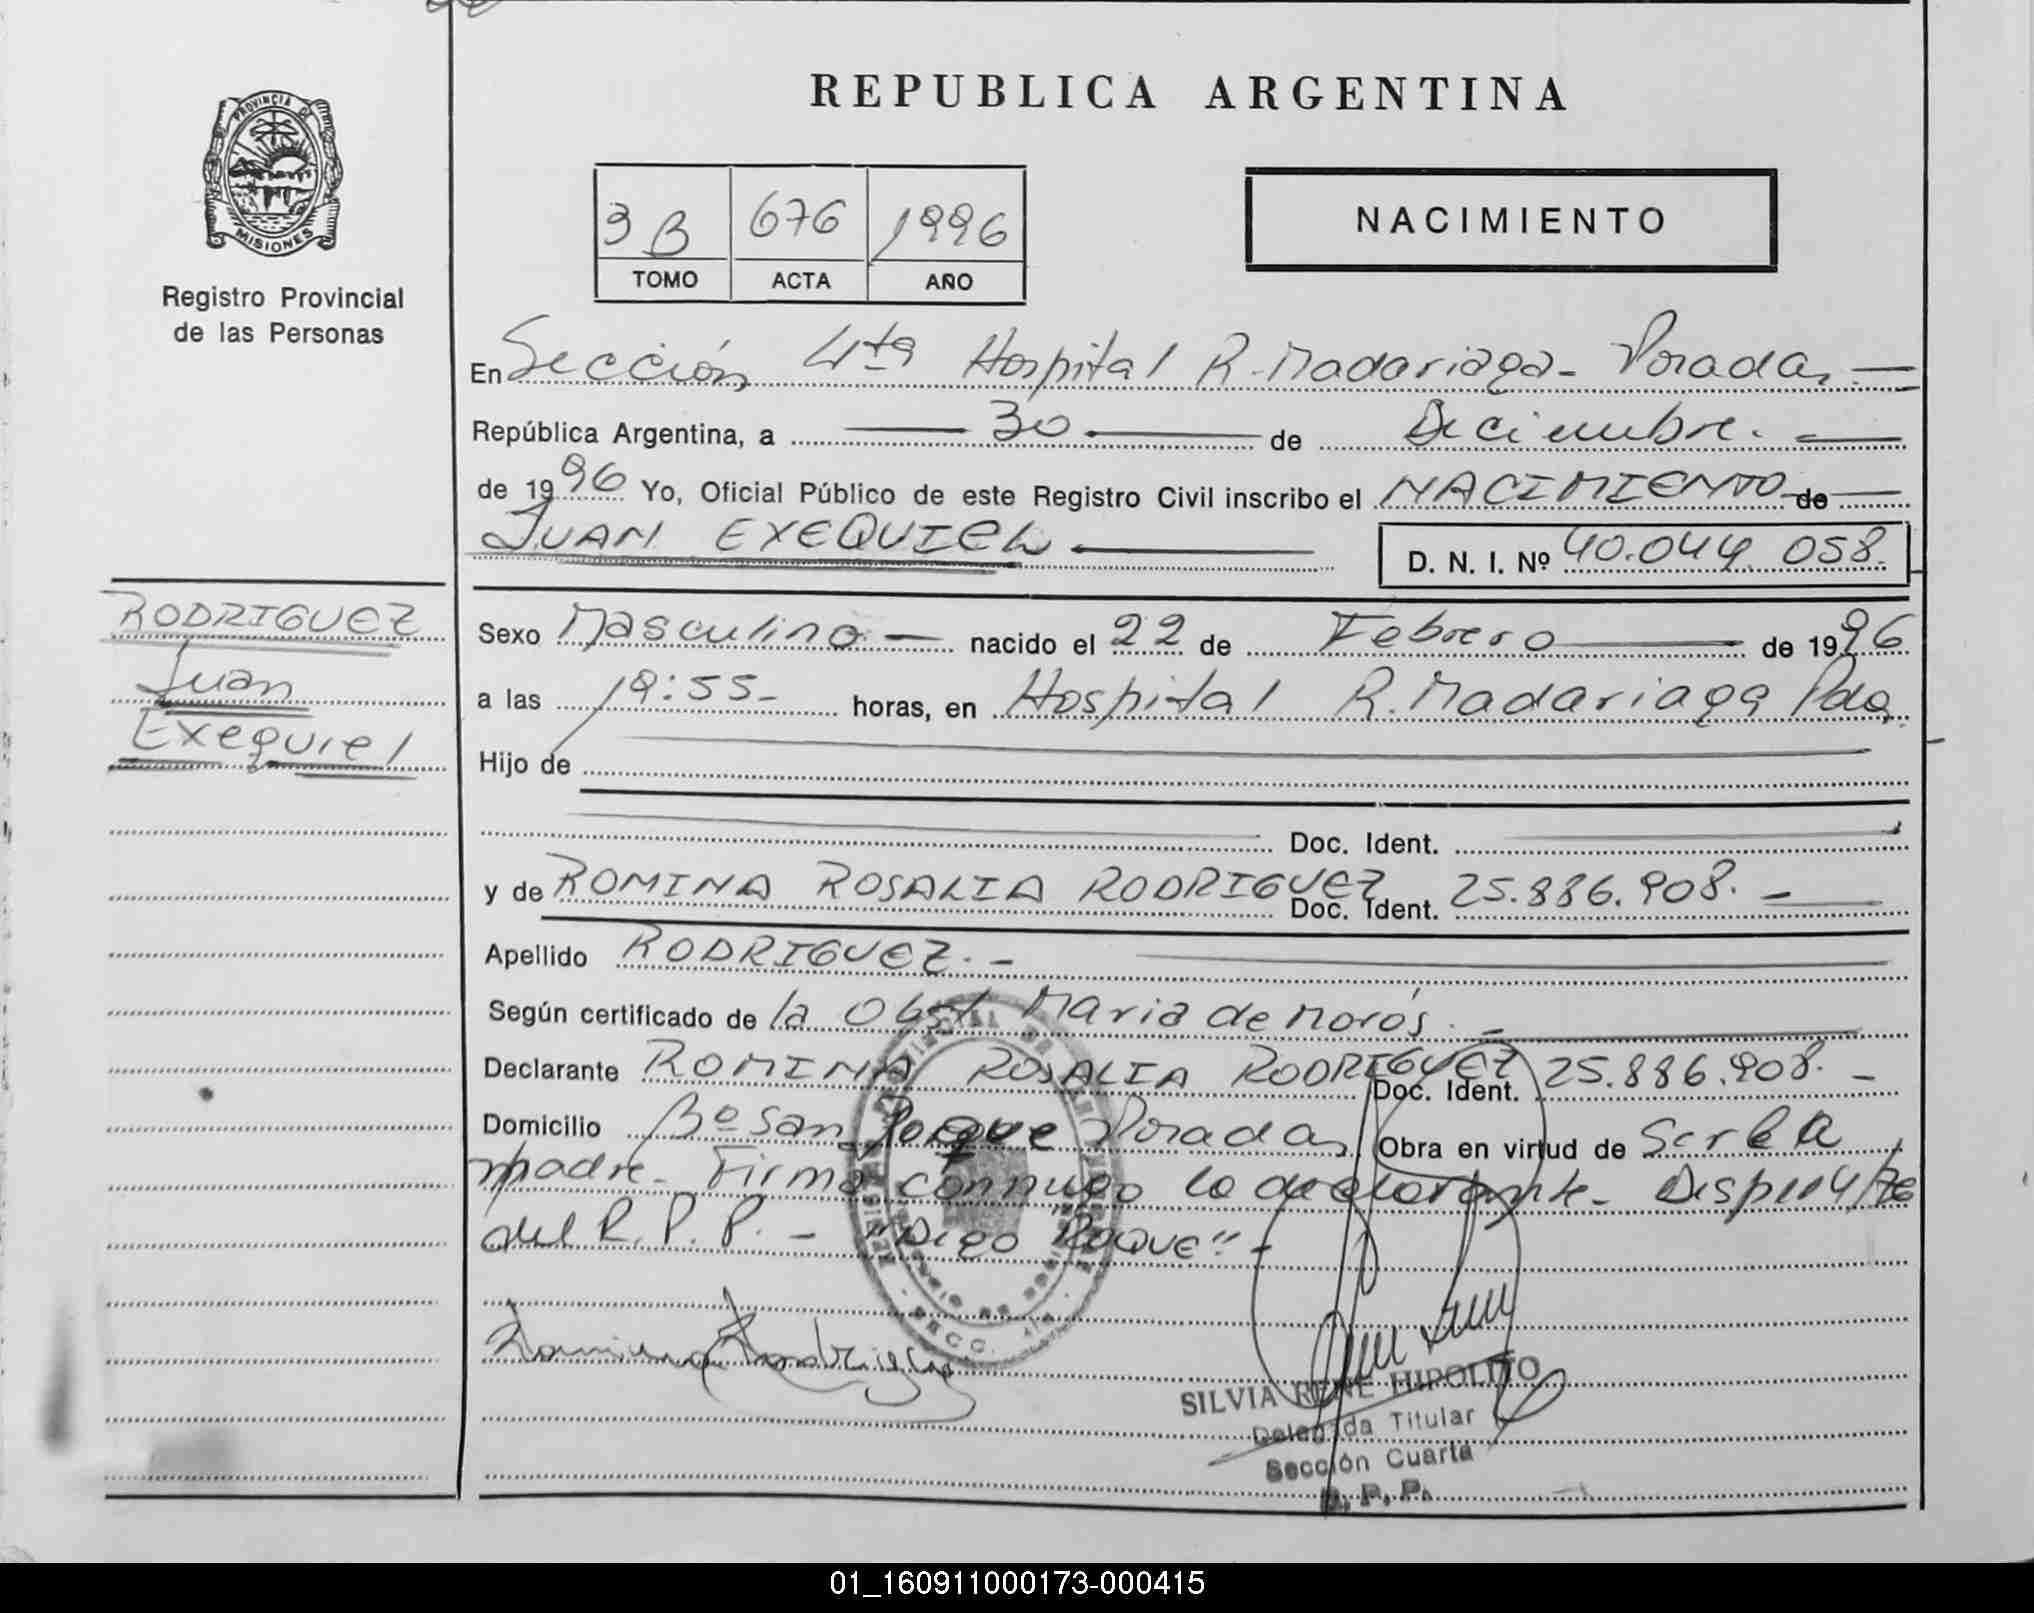 REPUBLICA ARGENTINA
PROVINCIA DE
MISIONES
Registro Provincial
de las Personas
3 B 676 1996
TOMO ACTA AÑO
NACIMIENTO
En Sección 4ta Hospital R. Madariaga - Posadas
República Argentina, a 30 de Diciembre.
de 1996 Yo, Oficial Público de este Registro Civil inscribo el NACIMIENTO de
JUAN EXEQUIEL D. N. I. Nº 40.044.058.
RODRIGUEZ
Juan
Exequiel
Sexo Masculino nacido el 22 de Febrero de 1996
a las 19:55 horas, en Hospital R. Madariaga Pdas.
Hijo de
Doc. Ident.
y de ROMINA ROSALIA RODRIGUEZ Doc. Ident. 25.886.908.
Apellido RODRIGUEZ.
Según certificado de la Obst Maria de Morós.
Declarante ROMINA ROSALIA RODRIGUEZ Doc. Ident. 25.886.908.
Domicilio Bº San Roque Posadas Obra en virtud de Ser la
madre. Firma conmigo la declarante.
del R. P. P. - "Digo Roque"
Romina Rodriguez
SILVIA RENE HIPOLITO
Delegada Titular
Sección Cuarta
R. P. P.
01_160911000173-000415